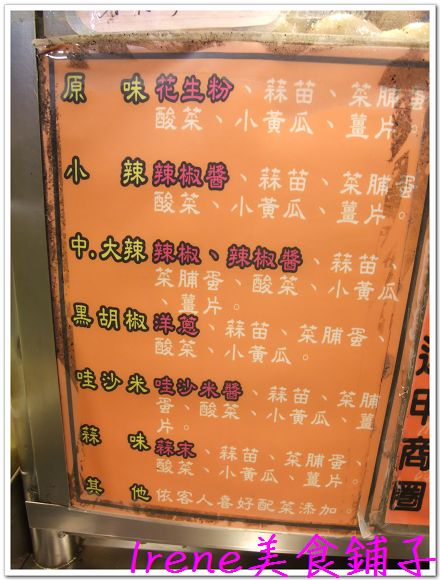 原味 花生粉、蒜苗、菜脯蛋
酸菜、小黃瓜、薑片。
小辣 辣椒醬、蒜苗、菜脯蛋
酸菜、小黃瓜、薑片。
中.大辣 辣椒、辣椒醬、蒜苗、
菜脯蛋、酸菜、小黃瓜
、薑片。
黑胡椒 洋蔥、蒜苗、菜脯蛋、
酸菜、小黃瓜。
哇沙米 哇沙米醬、蒜苗、菜脯
蛋、酸菜、小黃瓜、薑
片。
蒜味 蒜末、蒜苗、菜脯蛋、
酸菜、小黃瓜、薑片。
其他 依客人喜好配菜添加。
逢甲商圈
Irene美食鋪子